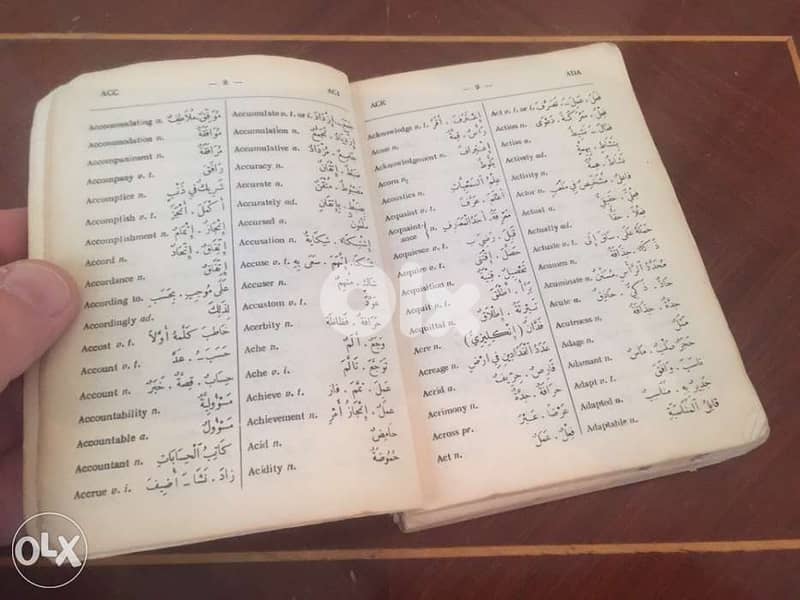 ACC — 8 — ACI
Accommodating a. مُوَافِق. مُلَاطِفٌ
Accommodation n. مُوَافَقَةٌ
Accompaniment n. مُرَافَقَةٌ
Accompany v. t. رَافَقَ
Accomplice n. شَرِيكٌ فِي ذَنْبٍ
Accomplish v. t. أَكْمَلَ. أَنْجَزَ
Accomplishment n. إِنْجَازٌ. إِتْمَامٌ
Accord n. إِتِّفَاقٌ. إِتِّحَادٌ
Accordance n. إِتِّفَاقٌ
According to. عَلَى مُوجَبِ. بِحَسَبِ
Accordingly ad. لِذَلِكَ
Accost v. t. خَاطَبَ. كَلَّمَهُ أَوَّلاً
Account v. t. حَسَبَ. عَدَّ
Account n. حِسَابٌ. قِصَّةٌ. خَبَرٌ
Accountability n. مَسْؤُولِيَّةٌ
Accountable a. مَسْؤُولٌ
Accountant n. كَاتِبُ الْحِسَابَاتِ
Accrue v. i. زَادَ. نَشَأَ - أُضِيفَ
Accumulate v. t. or i.
Accumulation n.
Accumulative a.
Accuracy n. ضَبْطٌ. إِتْقَانٌ
Accurate a. مَضْبُوطٌ. مُتْقَنٌ
Accurately ad. بِضَبْطٍ. بِإِتْقَانٍ
Accursed a. مَلْعُونٌ
Accusation n. إِشْتِكَاءٌ. شِكَايَةٌ
Accuse v. t. شَكَا. إِتَّهَمَ. سَعَى بِهِ
Accuser n.
Accustom v. t. عَوَّدَ
Acerbity n. حَرَافَةٌ. فَظَاظَةٌ
Ache n. وَجَعٌ. أَلَمٌ
Ache v. i. تَوَجَّعَ. تَأَلَّمَ
Achieve v. t. عَمِلَ. تَمَّمَ. فَازَ
Achievement n. عَمَلٌ. إِنْجَازُ أَمْرٍ
Acid n. حَامِضٌ
Acidity n. حُمُوضَةٌ
ACK — 9 — ADA
Acknowledge v. t. إِعْتَرَفَ. أَقَرَّ
Acme n. رَأْسٌ. قِمَّةٌ
Acknowledgment n. إِعْتِرَافٌ
Acorn n. بَلُّوطٌ
Acoustics n. عِلْمُ السَّمْعِيَّاتِ
Acquaint v. t. أَعْلَمَ. عَرَّفَ
Acquaint-
ance n. مَعْرِفَةٌ. أَحَدُ الْمَعَارِفِ
Acquiesce v. t. قَبِلَ. رَضِيَ بِ
Acquire v. t. حَصَّلَ. إِقْتَنَى
Acquisition n. تَحْصِيلٌ.
Acquit v. t. بَرَّأَ. أَطْلَقَ
Acquittal n. تَبْرِئَةٌ. إِطْلَاقٌ
Acre n. فَدَّانٌ (إِنْكِلِيزِيٌّ)
Acreage n. عَدَدُ الْفَدَادِينِ فِي أَرْضٍ
Acrid a. قَارِصٌ. حِرِّيفٌ
Acrimony n. حَرَافَةٌ. حِدَّةٌ
Across pr.
Act n. فِعْلٌ. عَمَلٌ
Act v. t. or i. فَعَلَ. عَمِلَ - تَصَرَّفَ
Action n. فِعْلٌ. مَعْرَكَةٌ. دَعْوَى
Active a. فَعَّالٌ. نَشِيطٌ
Actively ad. بِنَشَاطٍ. بِهِمَّةٍ
Activity n. نَشَاطٌ. هِمَّةٌ
Actor n.
Actual a. فِعْلِيٌّ. حَقِيقِيٌّ
Actually ad. فِعْلاً. حَقًّا
Actuate v. t. حَمَلَهُ عَلَى. سَاقَ إِلَى
Acumen n.
Acuminate a.
Acute a. حَادٌّ. ذَكِيٌّ. حَاذِقٌ
Acuteness n. حِدَّةٌ. حَذَاقَةٌ
Adage n. مَثَلٌ
Adamant n. حَجَرٌ صُلْبٌ. مَاسٌ
Adapt v. t. نَاسَبَ. وَافَقَ
Adapted a. جَدِيرٌ بِهِ. مُنَاسِبٌ
Adaptable a. قَابِلُ الْمُنَاسَبَةِ
OLX
OLX